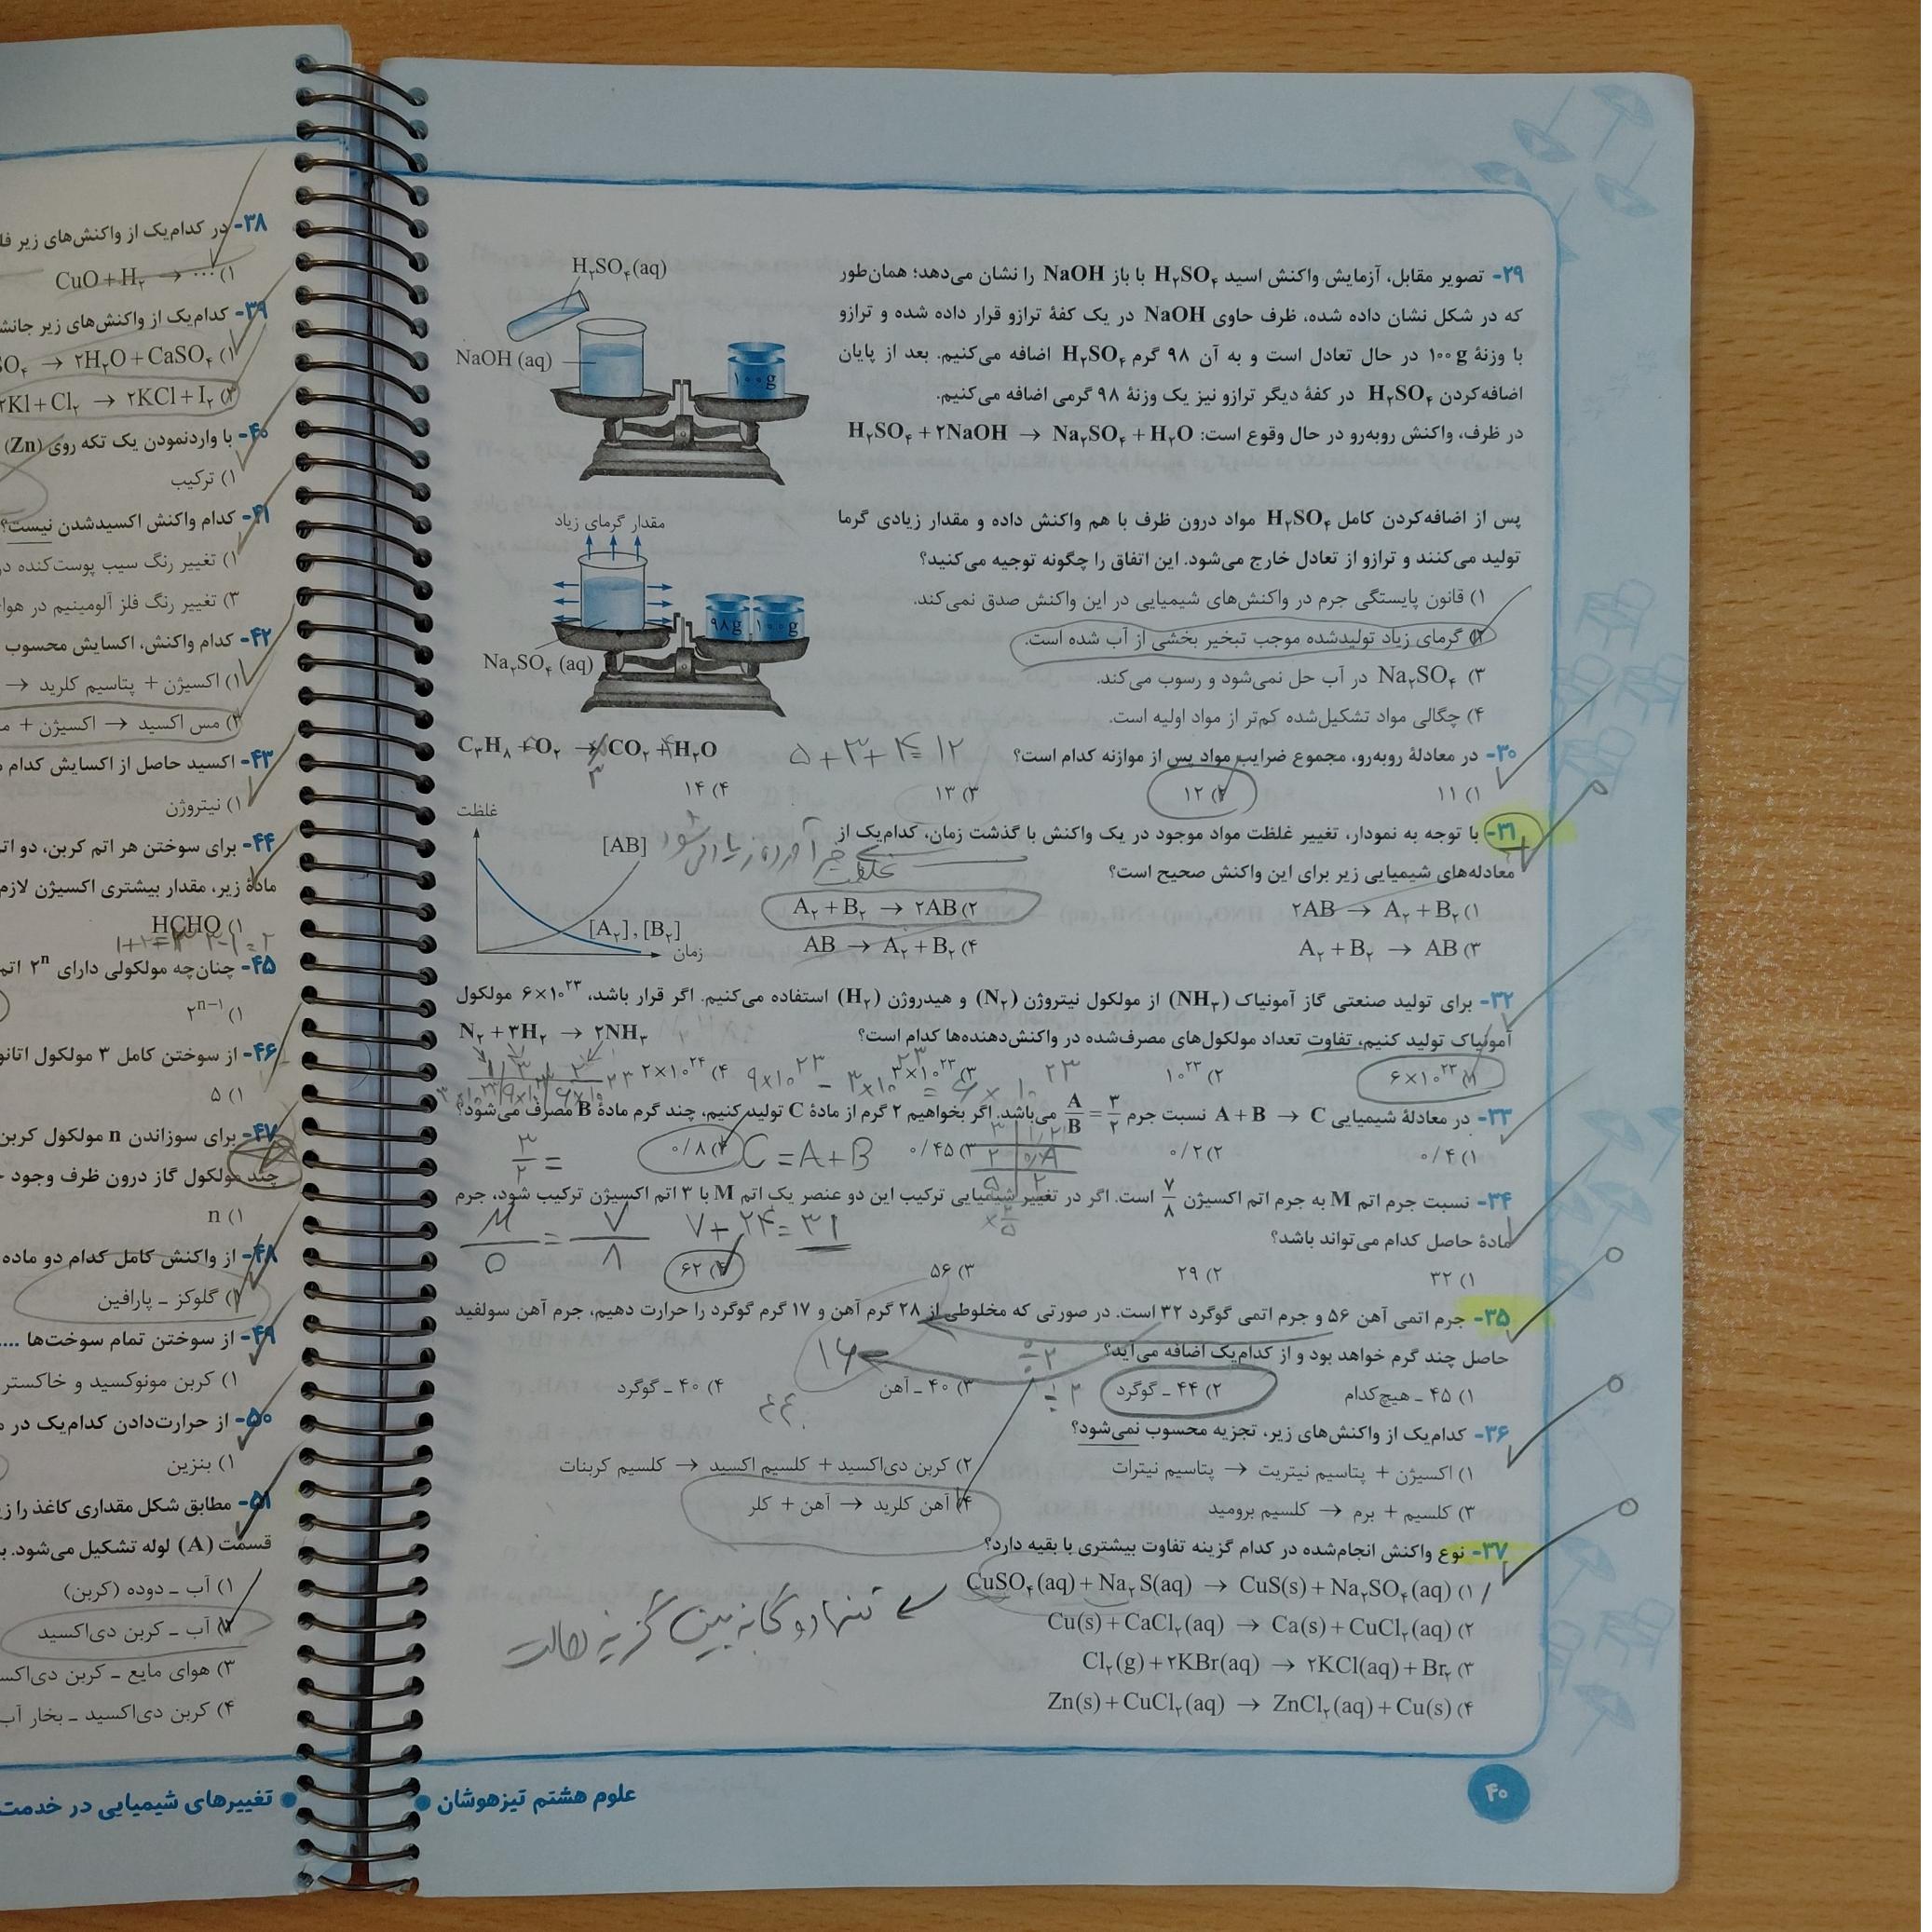 ۲۹- تصویر مقابل، آزمایش واکنش اسید H₂SO₄ با باز NaOH را نشان می‌دهد؛ همان‌طور
که در شکل نشان داده شده، ظرف حاوی NaOH در یک کفهٔ ترازو قرار داده شده و ترازو
با وزنهٔ ۱۰۰g در حال تعادل است و به آن ۹۸ گرم H₂SO₄ اضافه می‌کنیم. بعد از پایان
اضافه‌کردن H₂SO₄ در کفهٔ دیگر ترازو نیز یک وزنهٔ ۹۸ گرمی اضافه می‌کنیم.
در ظرف، واکنش روبه‌رو در حال وقوع است: H₂SO₄ + ۲NaOH → Na₂SO₄ + H₂O
H₂SO₄(aq)
NaOH (aq)
۱۰۰g
پس از اضافه‌کردن کامل H₂SO₄ مواد درون ظرف با هم واکنش داده و مقدار زیادی گرما
تولید می‌کنند و ترازو از تعادل خارج می‌شود. این اتفاق را چگونه توجیه می‌کنید؟
۱) قانون پایستگی جرم در واکنش‌های شیمیایی در این واکنش صدق نمی‌کند.
۲) گرمای زیاد تولیدشده موجب تبخیر بخشی از آب شده است.
۳) Na₂SO₄ در آب حل نمی‌شود و رسوب می‌کند.
۴) چگالی مواد تشکیل‌شده کم‌تر از مواد اولیه است.
مقدار گرمای زیاد
۹۸g ۱۰۰g
Na₂SO₄ (aq)
۳۰- در معادلهٔ روبه‌رو، مجموع ضرایب مواد پس از موازنه کدام است؟
C₃H₈ + O₂ → CO₂ + H₂O
۵+۳+۴= ۱۲
۳
۱) ۱۱ ۲) ۱۲ ۳) ۱۳ ۴) ۱۴
۳۱- با توجه به نمودار، تغییر غلظت مواد موجود در یک واکنش با گذشت زمان، کدام‌یک از
معادله‌های شیمیایی زیر برای این واکنش صحیح است؟
۱) ۲AB → A₂ + B₂ ۲) A₂ + B₂ → ۲AB
۳) A₂ + B₂ → AB ۴) AB → A₂ + B₂
غلظت
[AB]
[A₂] , [B₂]
زمان
۳۲- برای تولید صنعتی گاز آمونیاک (NH₃) از مولکول نیتروژن (N₂) و هیدروژن (H₂) استفاده می‌کنیم. اگر قرار باشد، ۶×۱۰²³ مولکول
آمونیاک تولید کنیم، تفاوت تعداد مولکول‌های مصرف‌شده در واکنش‌دهنده‌ها کدام است؟ N₂ + ۳H₂ → ۲NH₃
۱) ۶×۱۰²³ ۲) ۱۰²³ ۳) ۳×۱۰²³ ۴) ۲×۱۰²⁴
۹×۱۰²³ − ۳×۱۰²³ = ۶×۱۰²³
۳۳- در معادلهٔ شیمیایی A + B → C نسبت جرم A/B = ۳/۲ می‌باشد. اگر بخواهیم ۲ گرم از مادهٔ C تولید کنیم، چند گرم مادهٔ B مصرف می‌شود؟
۱) ۰/۴ ۲) ۰/۲ ۳) ۰/۴۵ ۴) ۰/۸
C = A+B
۳/۲ =
۳۴- نسبت جرم اتم M به جرم اتم اکسیژن ۷/۸ است. اگر در تغییر شیمیایی ترکیب این دو عنصر یک اتم M با ۳ اتم اکسیژن ترکیب شود، جرم
مادهٔ حاصل کدام می‌تواند باشد؟
M/O = ۷/۸ ۷+۲۴=۳۱
۱) ۳۲ ۲) ۲۹ ۳) ۵۶ ۴) ۶۲
۳۵- جرم اتمی آهن ۵۶ و جرم اتمی گوگرد ۳۲ است. در صورتی که مخلوطی از ۲۸ گرم آهن و ۱۷ گرم گوگرد را حرارت دهیم، جرم آهن سولفید
حاصل چند گرم خواهد بود و از کدام‌یک اضافه می‌آید؟
÷۲
۱۶
÷۲
۱) ۴۵ ـ هیچ‌کدام ۲) ۴۴ ـ گوگرد ۳) ۴۰ ـ آهن ۴) ۴۰ ـ گوگرد
۴۴
۳۶- کدام‌یک از واکنش‌های زیر، تجزیه محسوب نمی‌شود؟
۱) اکسیژن + پتاسیم نیتریت → پتاسیم نیترات ۲) کربن دی‌اکسید + کلسیم اکسید → کلسیم کربنات
۳) کلسیم + برم → کلسیم برومید ۴) آهن کلرید → آهن + کلر
۳۷- نوع واکنش انجام‌شده در کدام گزینه تفاوت بیشتری با بقیه دارد؟
۱) CuSO₄(aq) + Na₂S(aq) → CuS(s) + Na₂SO₄(aq)
تنها دوگانه بین گزینه هاست
۲) Cu(s) + CaCl₂(aq) → Ca(s) + CuCl₂(aq)
۳) Cl₂(g) + ۲KBr(aq) → ۲KCl(aq) + Br₂
۴) Zn(s) + CuCl₂(aq) → ZnCl₂(aq) + Cu(s)
۴۰
علوم هشتم تیزهوشان
۳۸- در کدام‌یک از واکنش‌های زیر
۱) CuO + H₂ → ...
۳۹- کدام‌یک از واکنش‌های زیر
۱) → ۲H₂O + CaSO₄
۳) ۲KI + Cl₂ → ۲KCl + I₂
۴۰- با واردنمودن یک تکه روی (Zn)
۱) ترکیب
۴۱- کدام واکنش اکسیدشدن نیست؟
۱) تغییر رنگ سیب پوست‌کنده
۳) تغییر رنگ فلز آلومینیم در هوا
۴۲- کدام واکنش، اکسایش محسوب
۱) اکسیژن + پتاسیم کلرید →
۳) مس اکسید → اکسیژن +
۴۳- اکسید حاصل از اکسایش کدام
۱) نیتروژن
۴۴- برای سوختن هر اتم کربن، دو
مادهٔ زیر، مقدار بیشتری اکسیژن لازم
۱) HCHO
۴۵- چنان‌چه مولکولی دارای ۲ⁿ
۱) ۲ⁿ⁻¹
۴۶- از سوختن کامل ۳ مولکول
۱) ۵
۴۷- برای سوزاندن n مولکول کربن
چند مولکول گاز درون ظرف وجود
۱) n
۴۸- از واکنش کامل کدام دو ماده
۱) گلوکز ـ پارافین
۴۹- از سوختن تمام سوخت‌ها ....
۱) کربن مونوکسید و خاکستر
۵۰- از حرارت‌دادن کدام‌یک در
۱) بنزین
۵۱- مطابق شکل مقداری کاغذ را
قسمت (A) لوله تشکیل می‌شود.
۱) آب ـ دوده (کربن)
۲) آب ـ کربن دی‌اکسید
۳) هوای مایع ـ کربن
۴) کربن دی‌اکسید ـ بخار آب
تغییرهای شیمیایی در خدمت